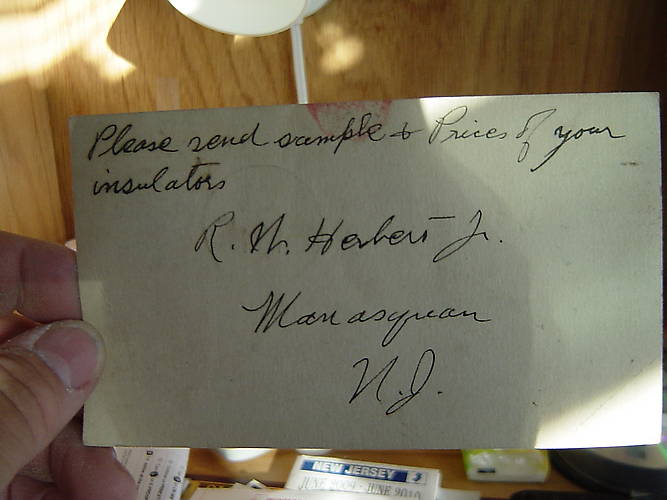 Please send sample & Prices of your
insulators
R. M. Herbert Jr.
Manasquan
N.J.
NEW JERSEY
JUNE 2009 - JUNE 2010